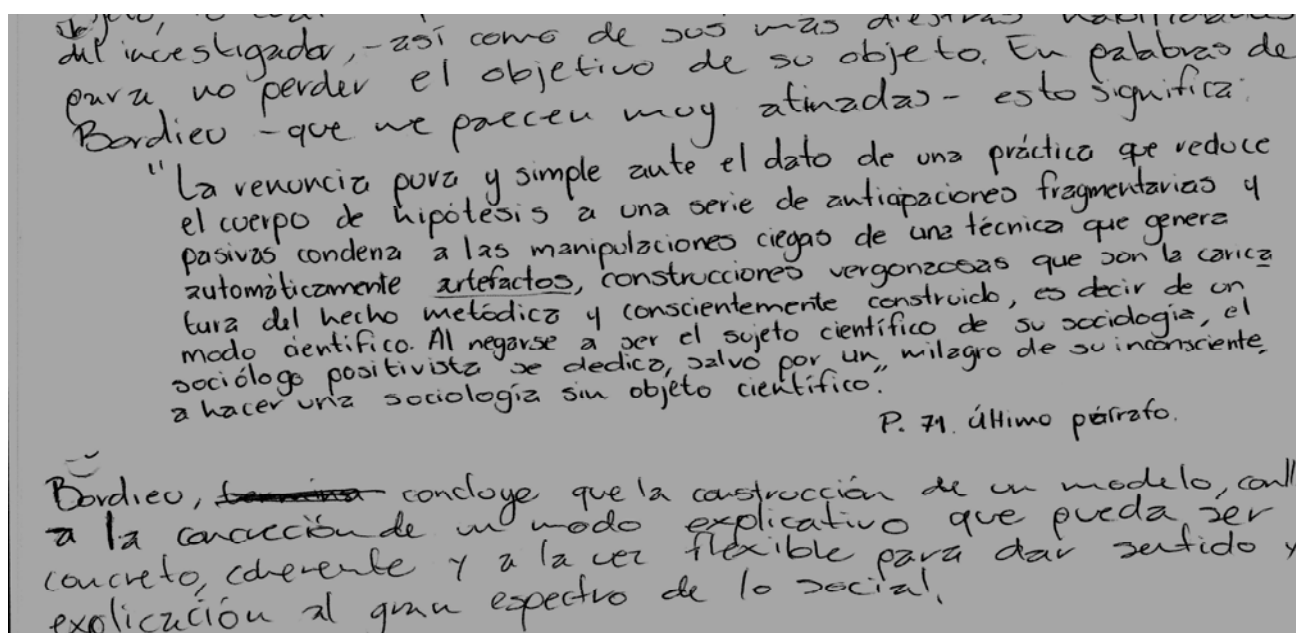 del investigador, - así como de sus más diestras habilidades
para no perder el objetivo de su objeto. En palabras de
Bordieu - que me parecen muy atinadas - esto significa:
"La renuncia pura y simple ante el dato de una práctica que reduce
el cuerpo de hipótesis a una serie de anticipaciones fragmentarias y
pasivas condena a las manipulaciones ciegas de una técnica que genera
automáticamente artefactos, construcciones vergonzosas que son la carica
tura del hecho metódica y conscientemente construido, es decir de un
modo científico. Al negarse a ser el sujeto científico de su sociología, el
sociólogo positivista se dedica, salvo por un milagro de su inconsciente,
a hacer una sociología sin objeto científico."
P. 71. último párrafo.
Bordieu, concluye que la construcción de un modelo,
a la concreción de un modo explicativo que pueda ser
concreto, coherente y a la vez flexible para dar sentido y
explicación al gran espectro de lo social.